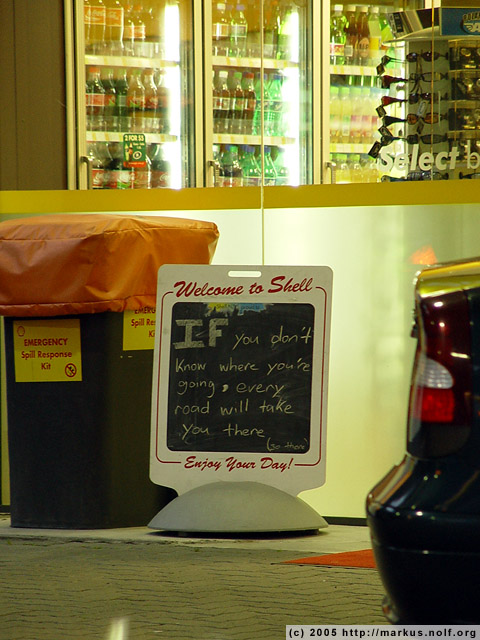 2 FOR $5
Select b
EMERGENCY
Spill Response
Kit
EMERG
Spill Res
Ki
Welcome to Shell
IF you don't
know where you're
going, every
road will take
you there
(so there)
Enjoy Your Day!
(c) 2005 http://markus.nolf.org